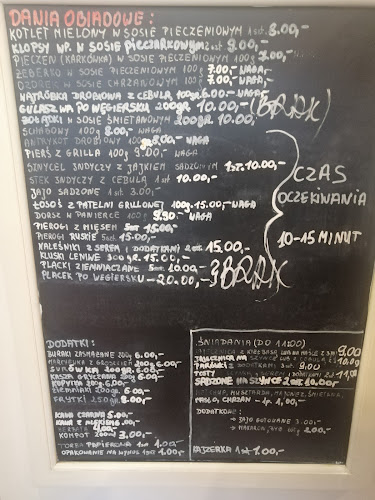 DANIA OBIADOWE:
KOTLET MIELONY W SOSIE PIECZENIOWYM 1szt. 8.00,-
KLOPSY WP. W SOSIE PIECZARKOWYM 2szt 9.00,-
PIECZEŃ (KARKÓWKA) W SOSIE PIECZENIOWYM 100g
ŻEBERKO W SOSIE PIECZENIOWYM 100g 7.00,- WAGA
W SOSIE CHRZANOWYM 100g 7.00,- WAGA
WĄTRÓBKA DROBIOWA Z CEBULĄ 100g 6.00,- WAGA
GULASZ WP. PO WĘGIERSKU 200gr 10.00,- (BRAK)
ŻOŁĄDKI W SOSIE ŚMIETANOWYM 200gr 10.00,-
SCHABOWY 100g 8.00,- WAGA
ANTRYKOT DROBIOWY 100g 8.00,- WAGA
PIERŚ Z GRILLA 100g 9.00,- WAGA
SZNYCEL INDYCZY Z JAJKIEM SADZONYM 1szt. 10.00,-
STEK INDYCZY Z CEBULĄ 1szt 10.00,-
JAJO SADZONE 1szt 3.00,-
ŁOSOŚ Z PATELNI GRILLOWEJ 100g 15.00,- WAGA
DORSZ W PANIERCE 100g 9.90,- WAGA
PIEROGI Z MIĘSEM 5szt 15.00,-
PIEROGI RUSKIE 5szt. 15.00,-
NALEŚNIKI Z SEREM I DODATKAMI 2szt 15.00,-
KLUSKI LENIWE 300gr 15.00,-
PLACKI ZIEMNIACZANE 5szt 10.00,- BRAK
PLACEK PO WĘGIERSKU - 20.00,-
CZAS
OCZEKIWANIA
10-15 MINUT
DODATKI:
BURAKI ZASMAŻANE 200g 6.00,-
MARCHEWKA Z GROSZKIEM 200g 6.00,-
SURÓWKA 200gr 6.00,-
KASZA GRYCZANA 200g 6.00,-
KOPYTKA 200g 6.00,-
ZIEMNIAKI 200g 6.00,-
FRYTKI 250g 8.00,-
KAWA CZARNA 5.00,-
KAWA Z MLEKIEM 6.00,-
HERBATA 4.00,-
KOMPOT 200ml 3.00,-
TORBA PAPIEROWA 1szt 1.00,-
OPAKOWANIE NA WYNOS 1szt 1.00,-
ŚNIADANIA (DO 11:00)
9.00
10.00
PARÓWKI Z DODATKAMI 3szt 9.00
TOSTY Z DODATKAMI 11.00
SADZONE NA SZYNCE 2szt 10.00,-
KETCHUP, MUSZTARDA, MAJONEZ, ŚMIETANA,
MASŁO, CHRZAN - gr. 1,00,-
DODATKOWE:
→ JAJO GOTOWANE 3.00,-
→ MAKARON 2.00,-
KAJZERKA 1szt 1.00,-